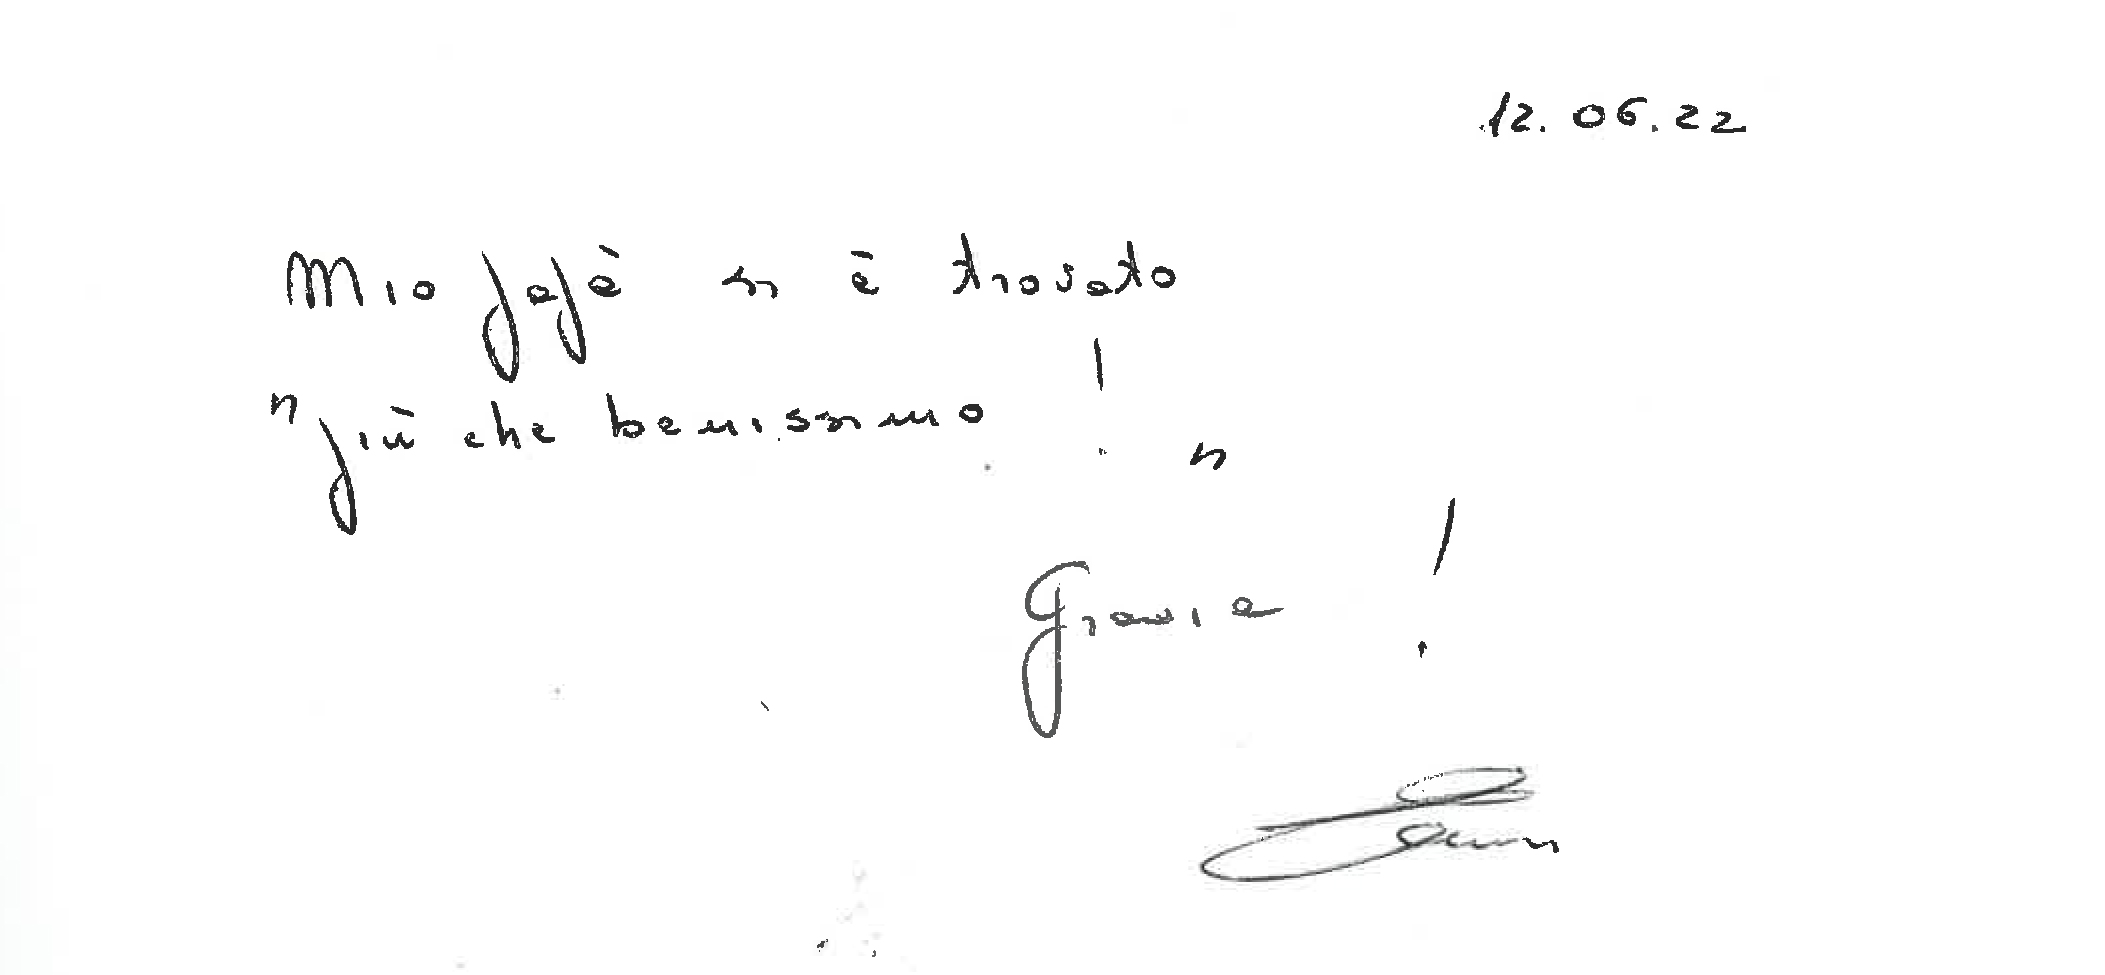 12.06.22
Mio papà si è trovato
"più che benissimo!"
Grazie!